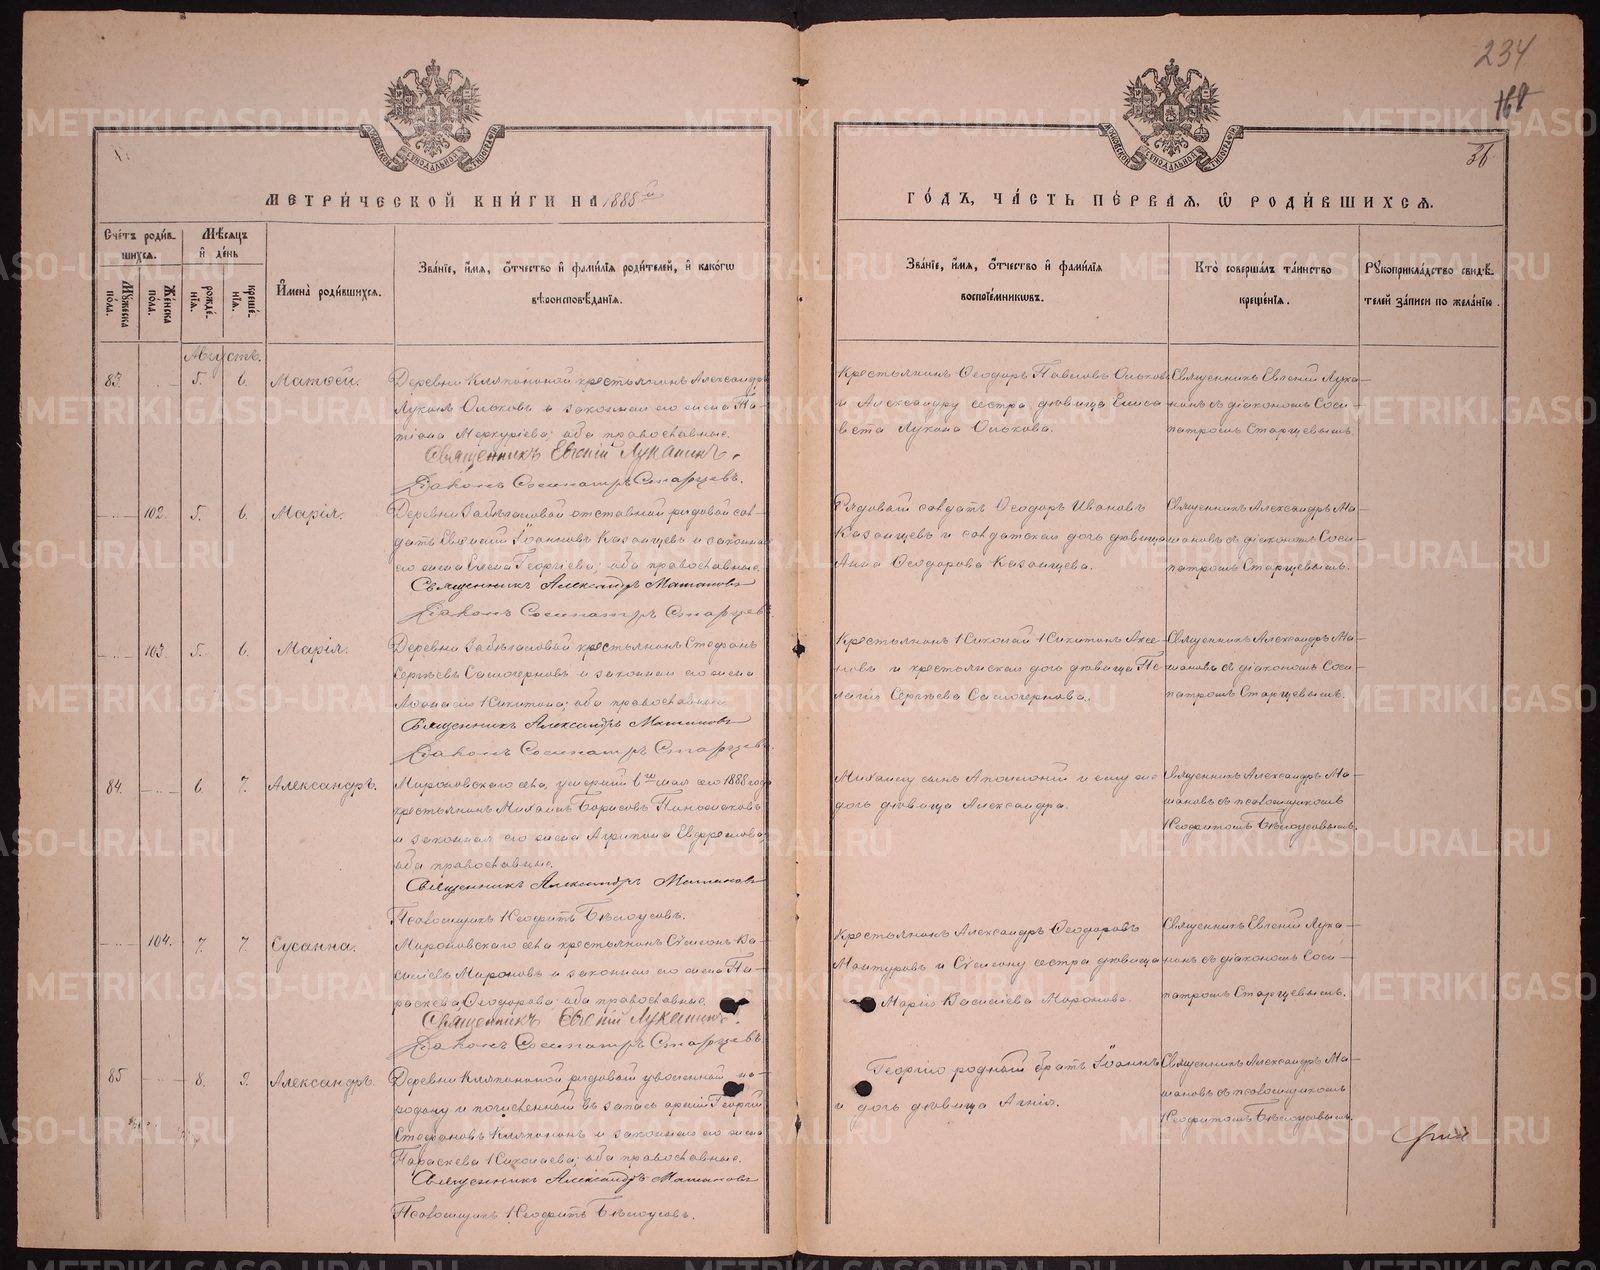 234
168
36
МОСКОВСКОЙ СѴНОДАЛЬНОЙ ТИПОГРАФІИ
МОСКОВСКОЙ СѴНОДАЛЬНОЙ ТИПОГРАФІИ
МЕТРИ́ЧЕСКОЙ КНИ́ГИ НА 1888й
ГО́ДЪ, ЧА́СТЬ ПЕ́РВАЯ, Ѡ РОДИ́ВШИХСЯ.
Сче́тъ роди́вшихся.
Мужеска по́ла.
Же́нска по́ла.
Мѣ́сяцъ и҆ де́нь
рожде́нїя.
креще́нїя.
И҆мена̀ роди́вшихся.
Зва́нїе, и҆́мя, ѻ҆́тчество и҆ фами́лїя роди́телей, и҆ како́гѡ
вѣроисповѣ́данїя.
Зва́нїе, и҆́мя, ѻ҆́тчество и҆ фами́лїя
воспрїе́мникѡвъ.
Кто̀ соверша́лъ та́инство
креще́нїя.
Рꙋкоприкла́дство свидѣ́-
телей за́писи по жела́нїю.
Августъ.
83. 5. 6. Матѳей.
Деревни Кляпининой крестьянинъ Александръ
Лукинъ Ольковъ и законная его жена Та-
тіана Меркуріева; оба православные.
Священникъ Евгеній Луканинъ.
Діаконъ Сосипатръ Старцевъ.
Крестьянинъ Ѳеодоръ Павловъ Ольковъ
и Александру сестра дѣвица Елиса-
вета Лукина Олькова.
Священникъ Евгеній Лука-
нинъ съ діакономъ Соси-
патромъ Старцевымъ.
102. 5. 6. Марія.
отставной рядовой сол-
датъ Евѳимій Іоанновъ Казанцевъ и законная
его жена Елена Георгіева; оба православные.
Священникъ Александръ
Діаконъ Сосипатръ Старцевъ
Рядовой солдатъ Ѳеодоръ Ивановъ
Казанцевъ и солдатская дочь дѣвица
Анна Ѳеодорова Казанцева.
Священникъ Александръ Ма-
съ діакономъ Соси-
патромъ Старцевымъ.
103. 5. 6. Марія.
крестьянинъ Стефанъ
Сергѣевъ Самочерновъ и законная его жена
Аѳанасія Никитина; оба православные.
Священникъ Александръ
Діаконъ Сосипатръ Старцевъ
Крестьянинъ Николай Никитинъ Аксе-
новъ и крестьянская дочь дѣвица Пе-
лагія Сергѣева Самочернова.
Священникъ Александръ Ма-
съ діакономъ Соси-
патромъ Старцевымъ.
84. 6. 7. Александръ.
Мироновскаго села, умершій 6го мая сего 1888 года
крестьянинъ Михаилъ Борисовъ
и законная его жена Агрипина Евфремова;
оба православные.
Священникъ Александръ
Псаломщикъ Неофитъ Бѣлоусовъ.
Михаилу сынъ Аполлоній и ему же
дочь дѣвица Александра.
Священникъ Александръ Ма-
съ псаломщикомъ
Неофитомъ Бѣлоусовымъ.
104. 7. 7. Сусанна.
Мироновскаго села крестьянинъ Сѵмеонъ Ва-
силіевъ Мироновъ и законная его жена Па-
раскева Ѳеодорова; оба православные.
Священникъ Евгеній Луканинъ.
Діаконъ Сосипатръ Старцевъ
Крестьянинъ Александръ Ѳеодоровъ
Мантуровъ и Сѵмеону сестра дѣвица
Марія Василіева Миронова.
Священникъ Евгеній Лука-
нинъ съ діакономъ Соси-
патромъ Старцевымъ.
85 8. 9. Александръ.
Деревни Кляпининой рядовой уволенный на
родину и въ запасъ арміи Георгій
Стефановъ Кляпининъ и законная его жена
Параскева Николаева; оба православные.
Священникъ Александръ
Псаломщикъ Неофитъ Бѣлоусовъ.
Георгію родный братъ Іоаннъ
и дочь дѣвица Агнія.
Священникъ Александръ Ма-
съ псаломщикомъ
Неофитомъ Бѣлоусовымъ.
METRIKI.GASO-URAL.RU